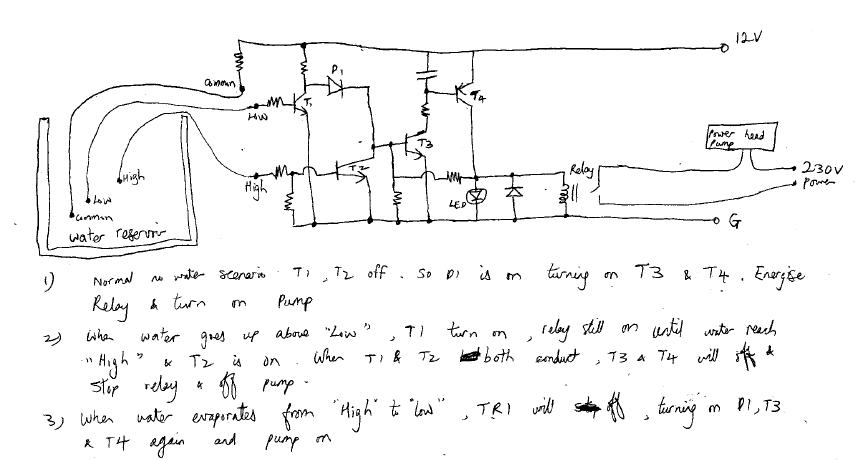 12V
D1
Common
T1
T4
Low
T3
Power head
Pump
T2
Relay
230V
Power
High
High
Low
LED
Common
G
water reservoir
1) Normal no water scenario. T1, T2 off. So D1 is on turning on T3 & T4. Energise
Relay & turn on Pump
2) When water goes up above "Low", T1 turn on, relay still on until water reach
"High" & T2 is on. When T1 & T2 both conduct, T3 & T4 will off &
Stop relay & off pump.
3) When water evaporates from "High" to "Low", TR1 will off, turning on D1, T3
& T4 again and pump on